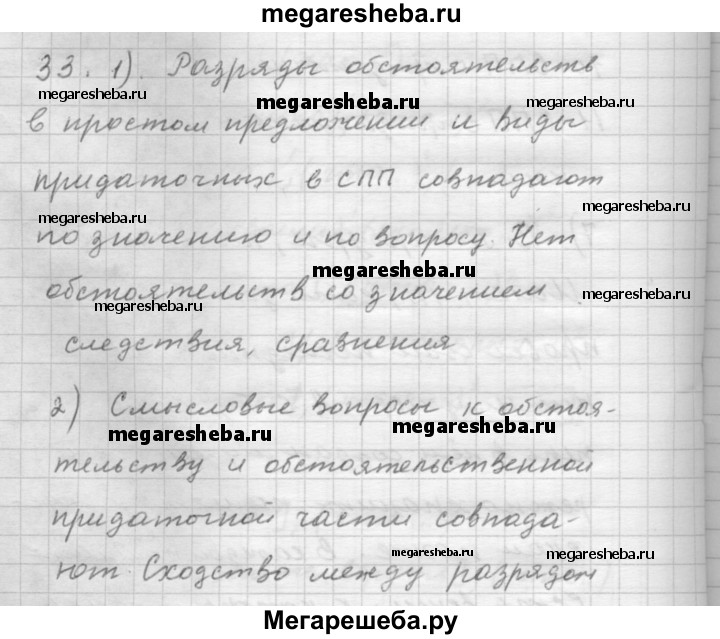 megaresheba.ru
33. 1). Разряды обстоятельств
megaresheba.ru
megaresheba.ru
megaresheba.ru
в простом предложении и виды
придаточных в СПП совпадают
megaresheba.ru
megaresheba.ru
по значению и по вопросу. Нет
megaresheba.ru
обстоятельств со значением
megaresheba.ru
megaresheba.ru
следствия, сравнения
2) Смысловые вопросы к обстоя-
megaresheba.ru
megaresheba.ru
тельству и обстоятельственной
придаточной части совпада-
megaresheba.ru
megaresheba.ru
ют. Сходство между разрядом
Мегарешеба.ру